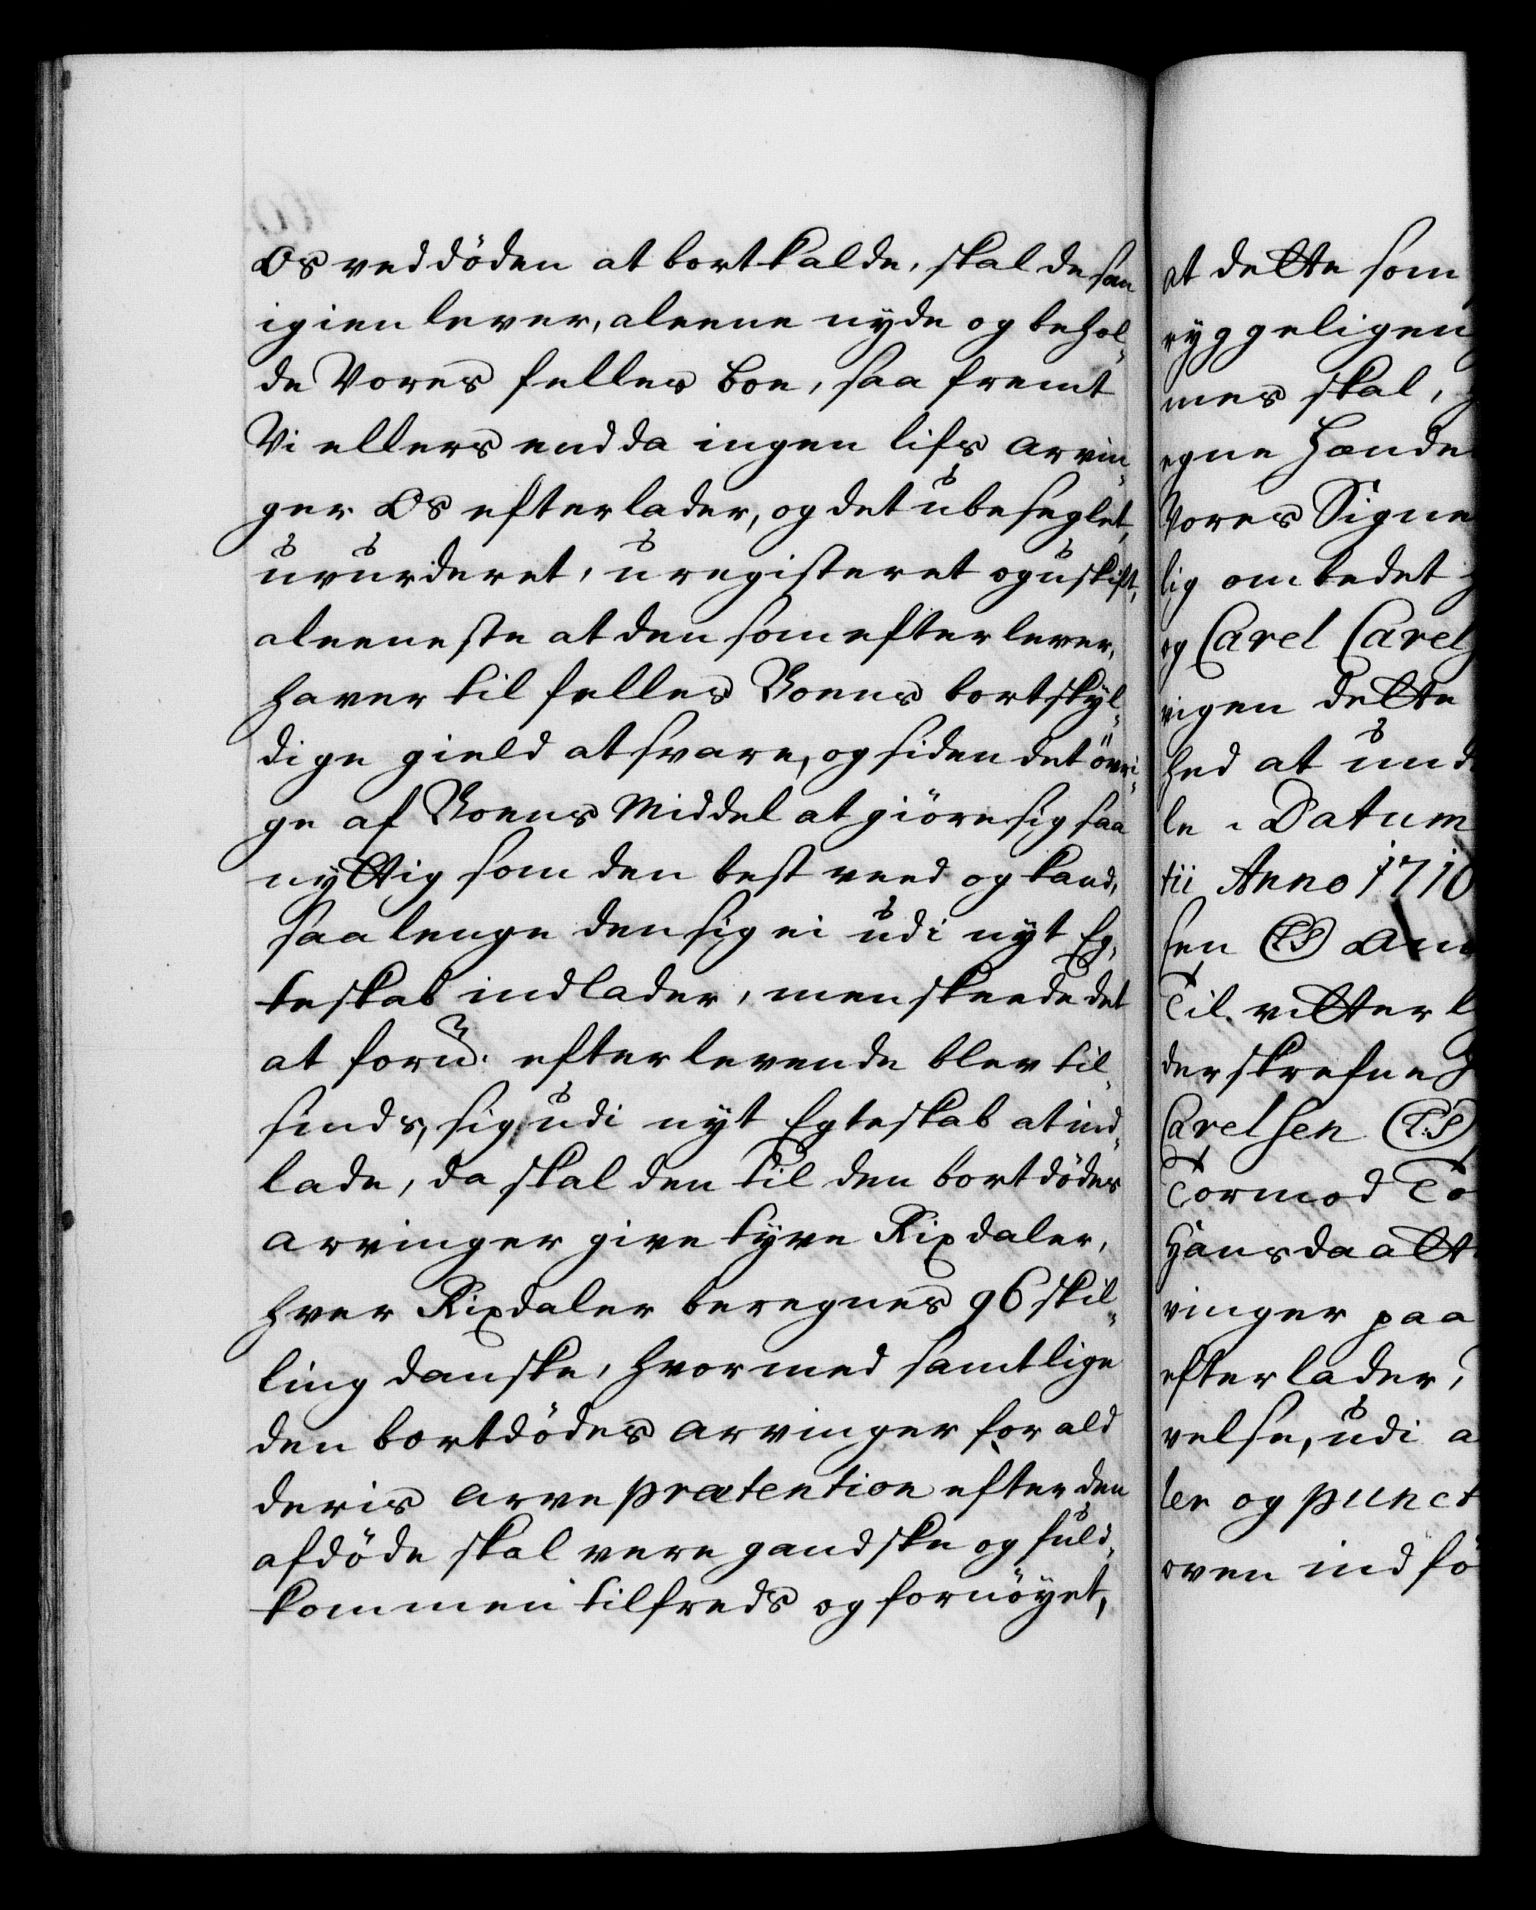 Os ved döden at bortkalde, skal den som
igien lever, aleene nyde og behol-
de Vores felles boe, saa fremt
Vi ellers endda ingen lifs arvin-
ger Os efterlader, og det ubeseglet,
uvurderet, uregisteret og uskift,
aleeneste at den som efterlever,
haver til felles Boens bortskyl-
dige gield at svare, og siden det övri-
ge af Boens Middel at giöre sig saa
nyttig som den best veed og kand,
saa lenge den sig ei udi nyt Eg-
teskab indlader, men skeede det
at forn. efterlevende blev til-
sinds, sig udi nyt Egteskab at ind-
lade, da skal den til den bortdödes
arvinger give tyve Rixdaler,
hver Rixdaler beregnes 96 skil-
ling danske, hvormed samtlige
den bortdödes arvinger for ald
deris arve prætention efter den
afdöde skal vere gandske og fuld-
kommen tilfreds og fornöyet,
at dette som
ryggeligen
mes skal,
egne Hænde
Vores Signe
lig ombedet
og Carel Carel
vigen dette
hed at und
le. Datum
tii Anno 1710
sen (LS) An
Til vitterl
derskrefne
Carelsen (LS)
Tormod To
Hansdaatt
vinger paa
efterlader,
velse, udi a
ler og punct
oven indfö